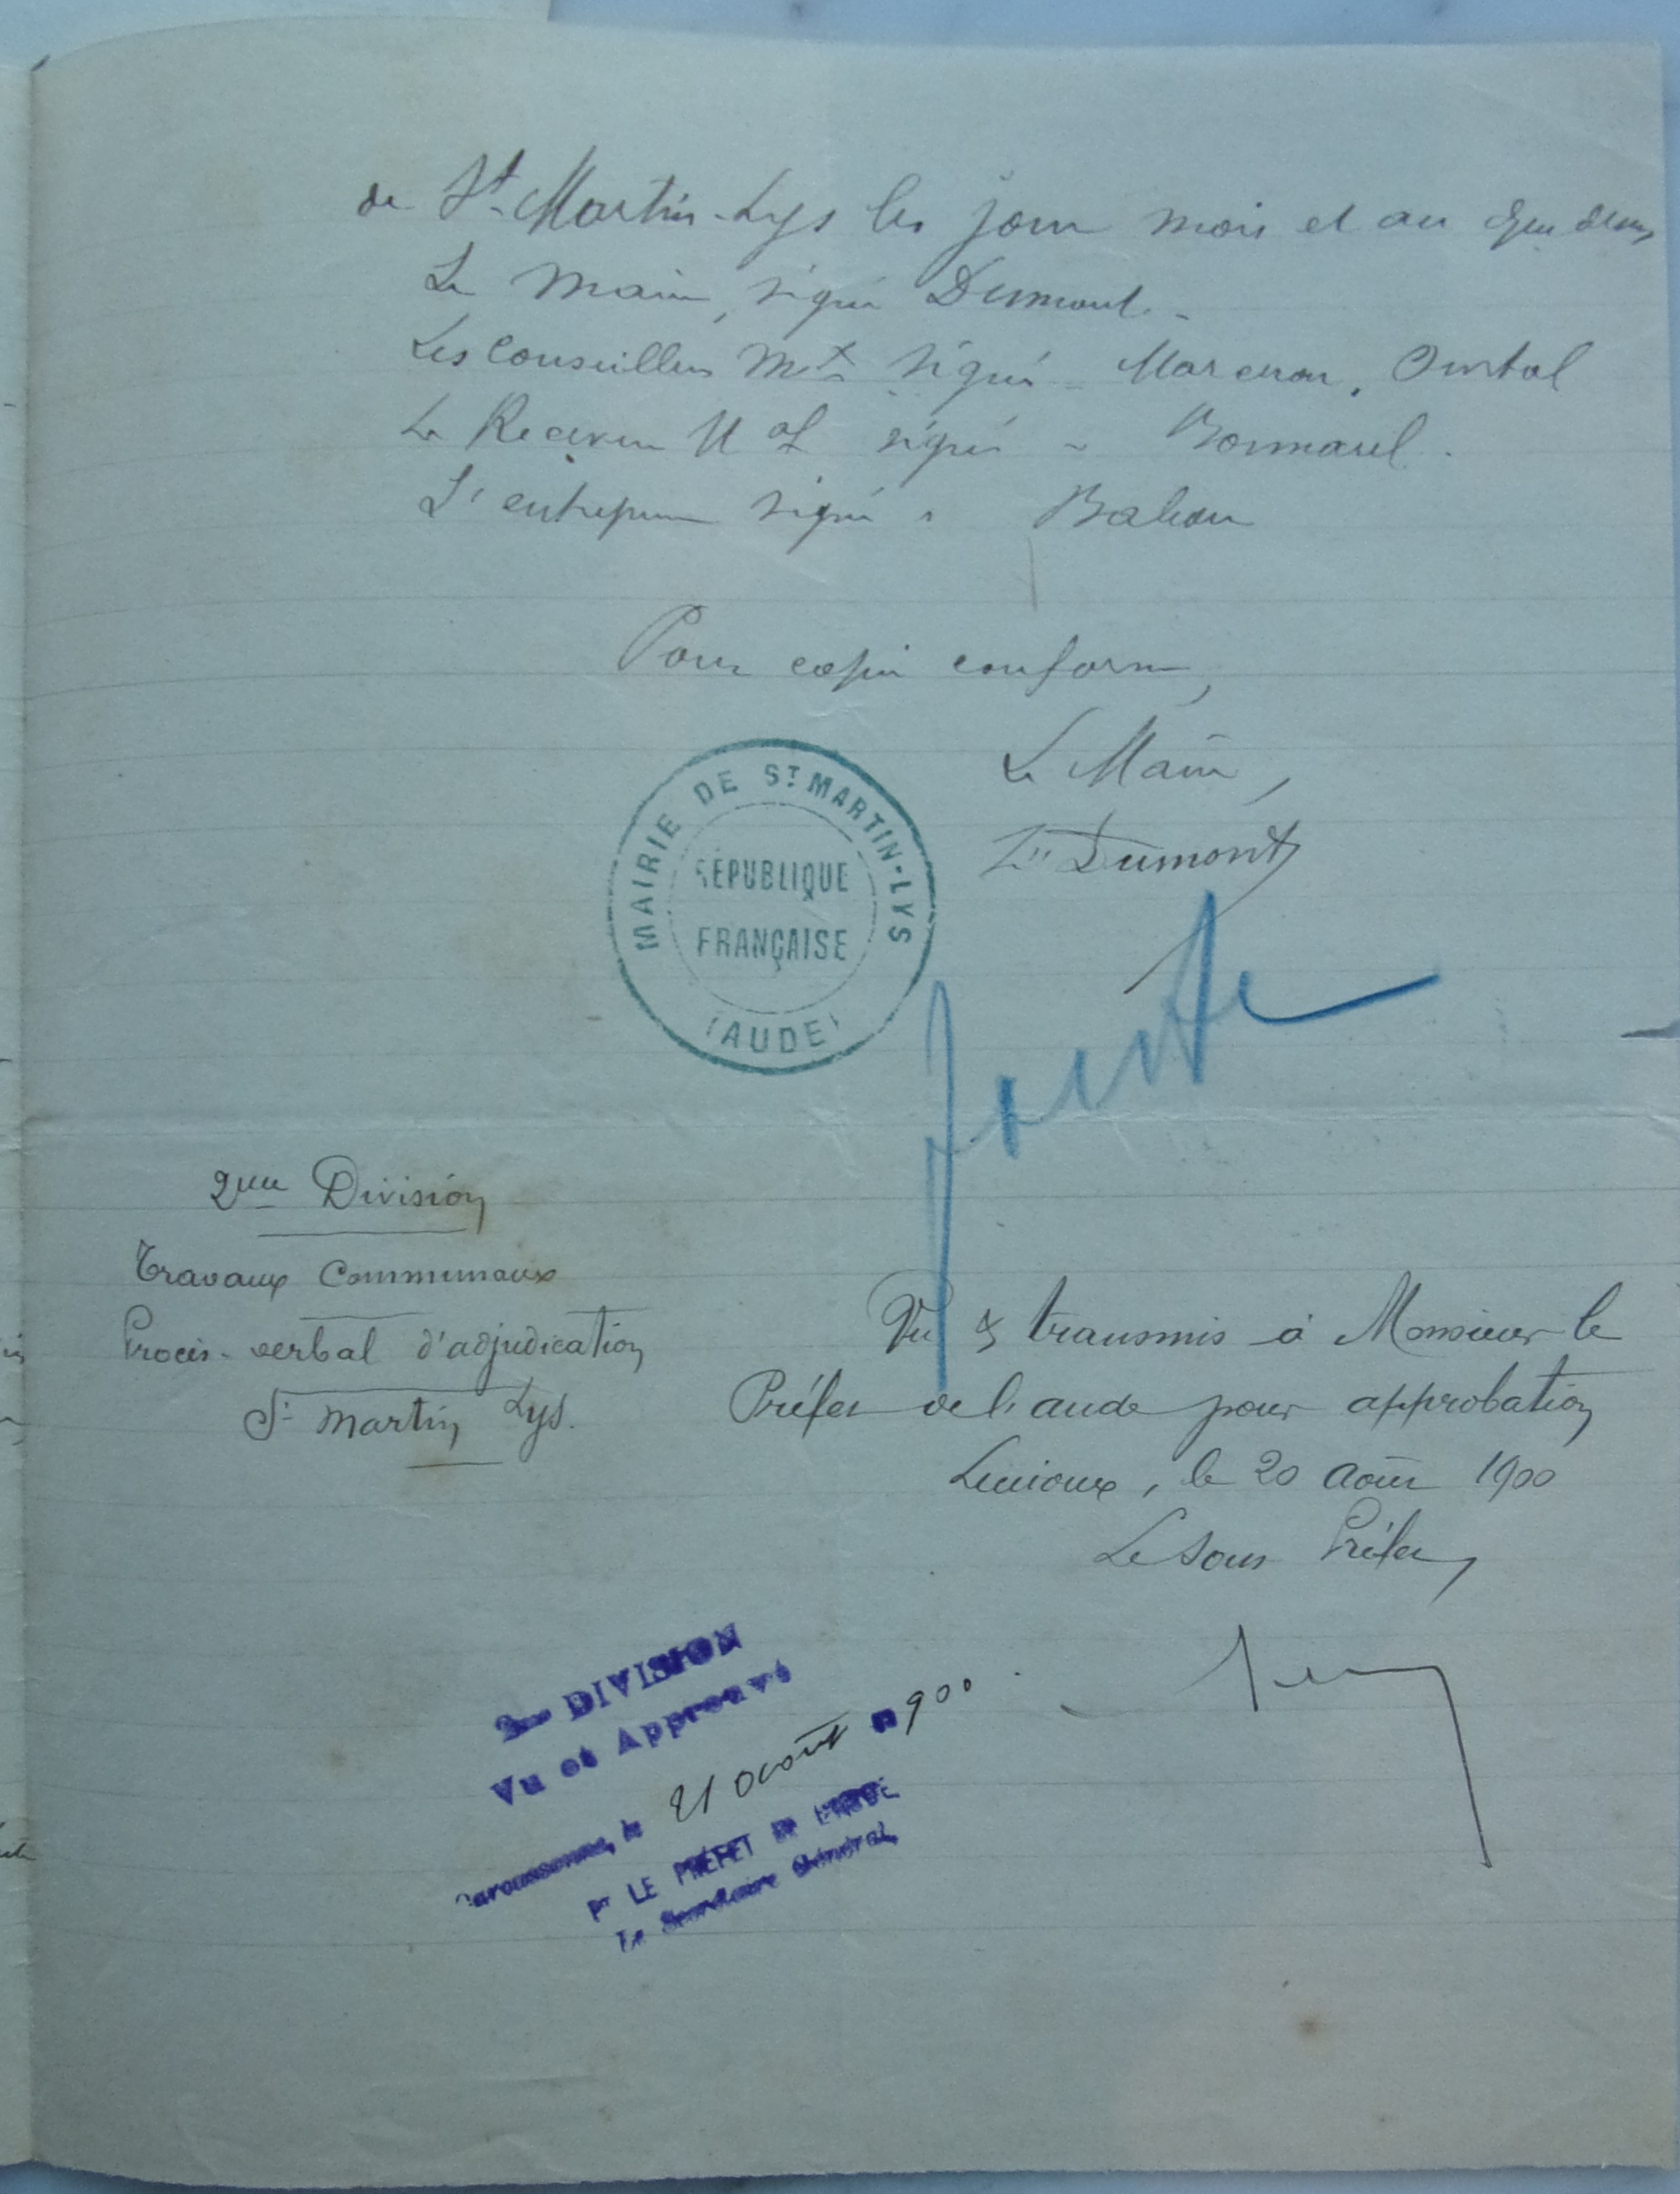 de St. Martin-Lys les jour mois et an que dessus
Le Maire, signé Dumont.
Les Conseillers Mx signé - Marceron, Ourtal
Le Receveur Mal signé - Bonnarel.
L'entrepreneur signé - Bahou
Pour copie conforme,
Le Maire,
Dumont
MAIRIE DE ST MARTIN-LYS
RÉPUBLIQUE
FRANÇAISE
(AUDE)
2eme Division
Travaux Communaux
Procès-verbal d'adjudication
St Martin Lys.
Vu & transmis à Monsieur le
Préfet de l'aude pour approbation
Limoux, le 20 août 1900
Le Sous Préfet,
2me DIVISION
Vu et Approuvé
Carcassonne, le 21 août 1900.
Pr LE PRÉFET DE L'AUDE
Le Secrétaire Général,